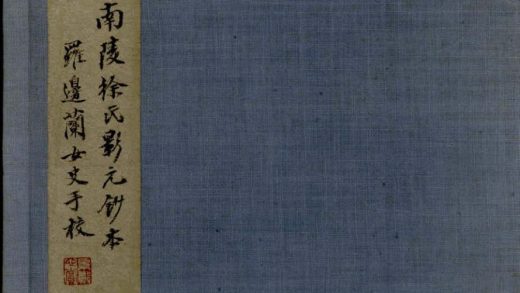 南陵徐氏影元鈔本
羅邊蘭女史手校